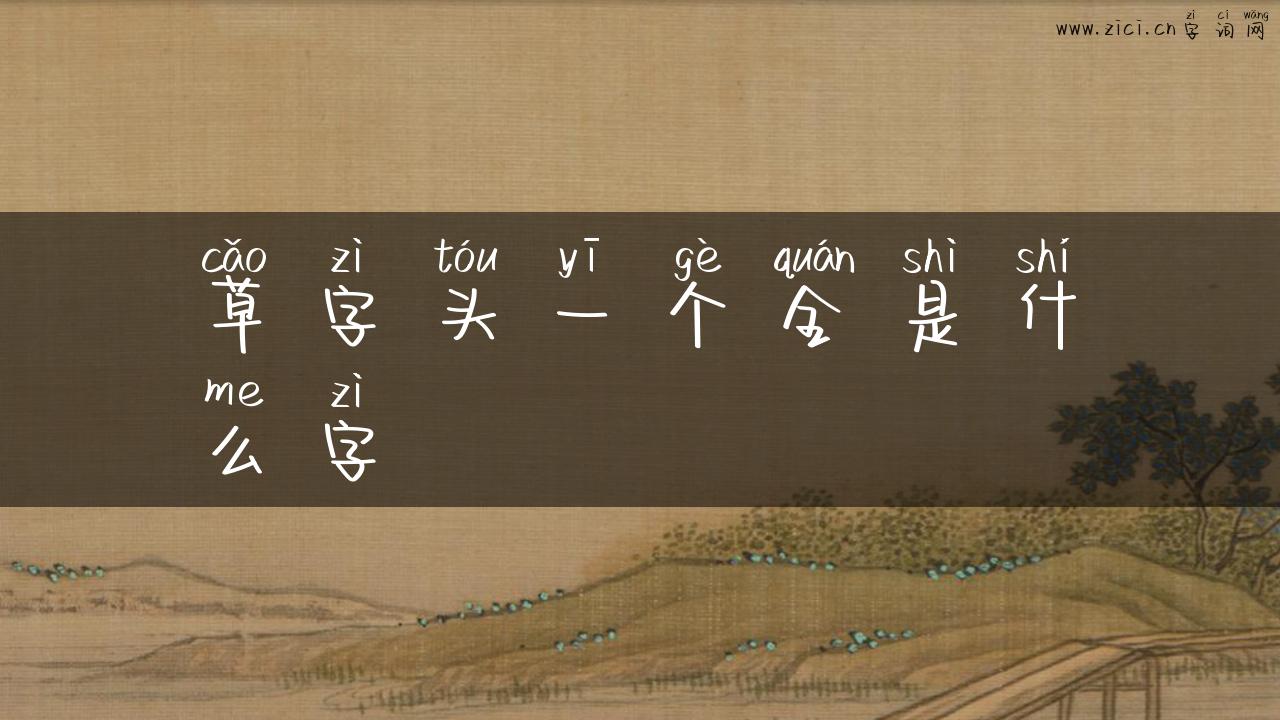 zì cí wǎng
www.zici.cn字词网
cǎo zì tóu yī gè quán shì shí
草字头一个全是什
me zì
么字